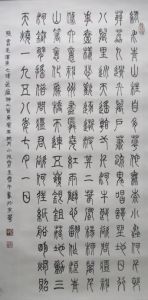 綠水青山枉自多華佗無奈小蟲何千村
薜荔人遺矢萬戶蕭疏鬼唱歌坐地日行
八萬里巡天遙看一千河牛郎欲問瘟神
事一樣悲歡逐逝波春風楊柳萬千條六
億神州盡舜堯紅雨隨心翻作浪青山
著意化為橋天連五嶺銀鋤落地動三
河鐵臂搖借問瘟君欲何往紙船明燭照
天燒一九五八年七月一日